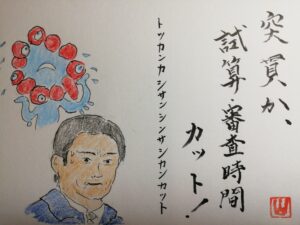 突貫か、
試算・審査時間
カット!
トッカンカシサンシンサジカンカット